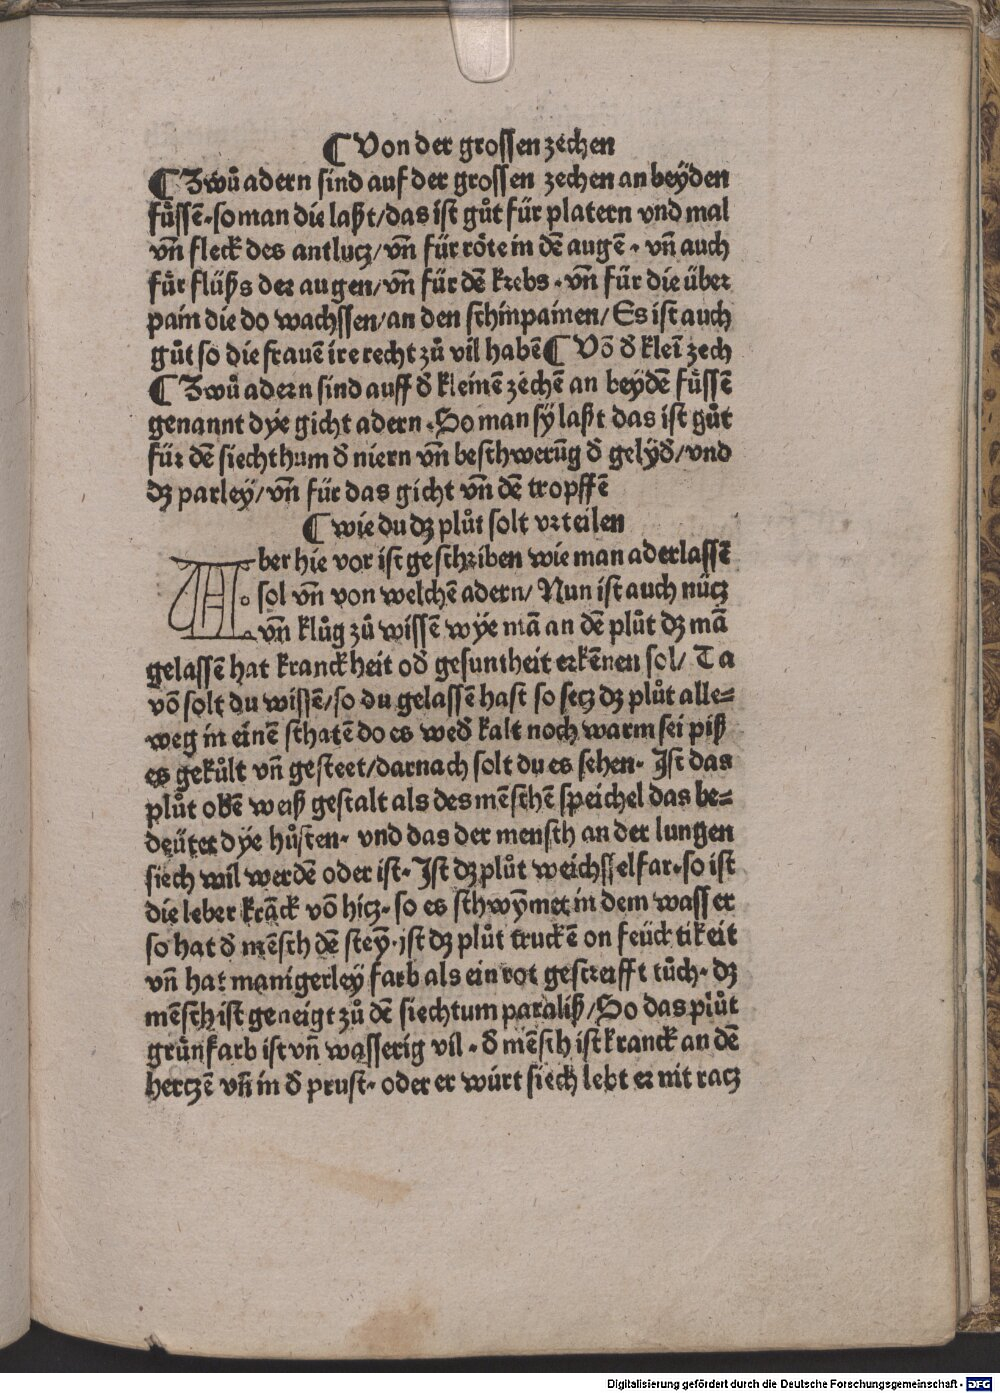 ¶ Von der grossen zechen
¶ Zwů adern sind auf der grossen zechen an beÿden
fuͤssē · so man die laßt/ das ist gůt für platern vnd mal
vn̄ fleck des antlucz/ vn̄ für roͤte in dē augē · vn̄ auch
fuͤr flüßs der augen/ vn̄ für dē krebs · vn̄ für die über
pain die do wachssen/ an den schinpainen/ Es ist auch
gůt so die frauē ire recht zů vil habē ¶ Vō d̄ kleī zech
¶ Zwů adern sind auff d̄ kleinē zéchē an beydē fuͤssē
genannt dÿe gicht adern · So man sÿ laßt das ist gůt
für dē siechthum d̄ niern vn̄ beschwerūg d̄ gelÿd̄/ vnd
dꝫ parleÿ/ vn̄ für das gicht vn̄ dē tropffē
¶ wie du dꝫ plůt solt vrteilen
Aber hie vor ist geschriben wie man aderlassē
sol vn̄ von welchē adern/ Nun ist auch nücz
vn̄ klůg zů wissē wÿe mā an dē plůt dꝫ mā
gelassē hat kranckheit od̄ gesuntheit erkēnen sol/ Ta
vō solt du wissē/ so du gelassē hast so secz dꝫ plůt alle=
weg in einē schatē do es wed̄ kalt noch warm sei piß
es gekůlt vn̄ gesteet/ darnach solt du es sehen · Ist das
plůt obē weiß gestalt als des mēschē speichel das be=
deütet dÿe hůsten · vnd das der mensch an der lungen
siech wil werdē oder ist · Ist dꝫ plůt weichsselfar · so ist
die leber krāck vō hicz · so es schwȳmet in dem wasser
so hat d̄ mēsch dē steȳ · ist dꝫ plůt truckē on feüchtikeit
vn̄ hat manigerleÿ farb als ein rot gestreifft tůch · dꝫ
mēsch ist geneigt zů dē siechtum paraliß/ So das plůt
gruͤnfarb ist vn̄ wasserig vil · d̄ mēsch ist kranck an dē
herczē vn̄ in d̄ prust · oder er würt siech lebt er nit racz
Digitalisierung gefördert durch die Deutsche Forschungsgemeinschaft - DFG